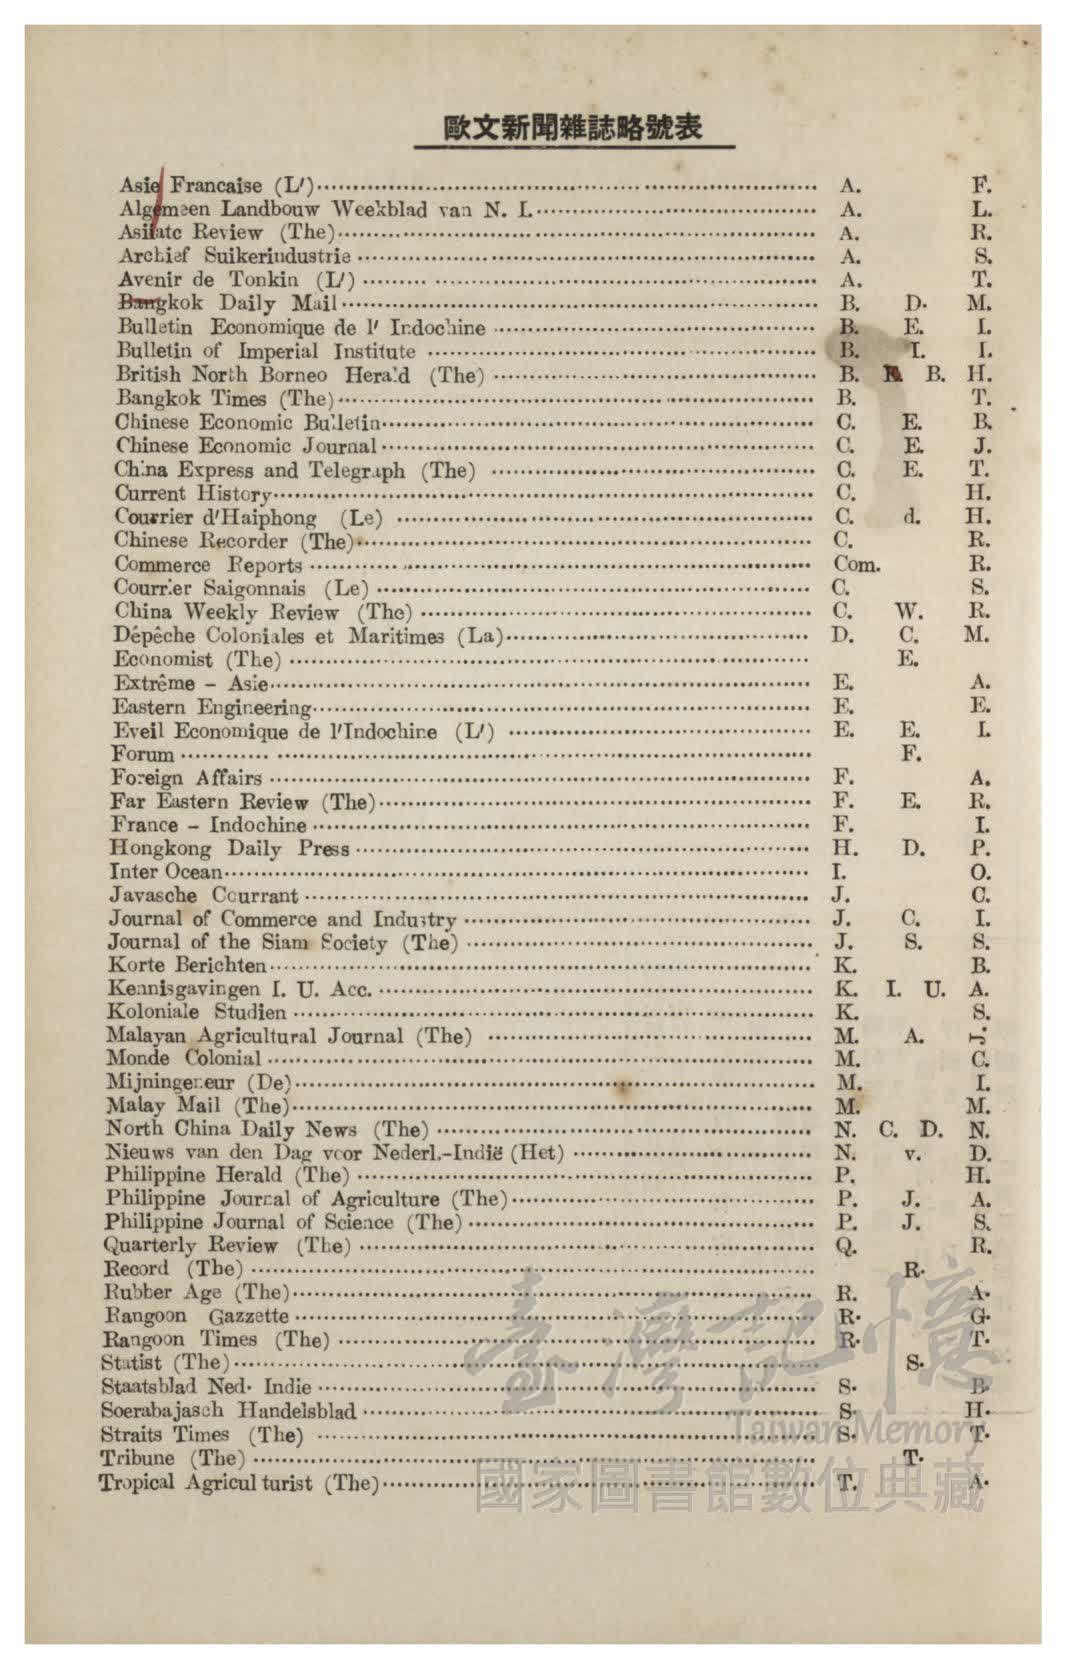 歐文新聞雜誌略號表
Asie Francaise (L') A. F.
Algemeen Landbouw Weekblad van N. I. A. L.
Asiiatc Review (The) A. R.
Archief Suikerindustrie A. S.
Avenir de Tonkin (L') A. T.
Bangkok Daily Mail B. D. M.
Bulletin Economique de l' Indochine B. E. I.
Bulletin of Imperial Institute B. I. I.
British North Borneo Herald (The) B. B. H.
Bangkok Times (The) B. T.
Chinese Economic Bulletin C. E. B.
Chinese Economic Journal C. E. J.
China Express and Telegraph (The) C. E. T.
Current History C. H.
Courrier d'Haiphong (Le) C. d. H.
Chinese Recorder (The) C. R.
Commerce Reports Com. R.
Courrier Saigonnais (Le) C. S.
China Weekly Review (The) C. W. R.
Dépêche Coloniales et Maritimes (La) D. C. M.
Economist (The) E.
Extrême - Asie E. A.
Eastern Engineering E. E.
Eveil Economique de l'Indochine (L') E. E. I.
Forum F.
Foreign Affairs F. A.
Far Eastern Review (The) F. E. R.
France - Indochine F. I.
Hongkong Daily Press H. D. P.
Inter Ocean I. O.
Javasche Courrant J. C.
Journal of Commerce and Industry J. C. I.
Journal of the Siam Society (The) J. S. S.
Korte Berichten K. B.
Kennisgavingen I. U. Acc. K. I. U. A.
Koloniale Studien K. S.
Malayan Agricultural Journal (The) M. A. J.
Monde Colonial M. C.
Mijningeneur (De) M. I.
Malay Mail (The) M. M.
North China Daily News (The) N. C. D. N.
Nieuws van den Dag voor Nederl.-Indië (Het) N. v. D.
Philippine Herald (The) P. H.
Philippine Journal of Agriculture (The) P. J. A.
Philippine Journal of Science (The) P. J. S.
Quarterly Review (The) Q. R.
Record (The) R.
Rubber Age (The) R. A.
Rangoon Gazzette R. G.
Rangoon Times (The) R. T.
Statist (The) S.
Staatsblad Ned. Indie S. B.
Soerabajasch Handelsblad S. H.
Straits Times (The) S. T.
Tribune (The) T.
Tropical Agricul turist (The) T. A.
臺灣記憶
Taiwan Memory
國家圖書館數位典藏